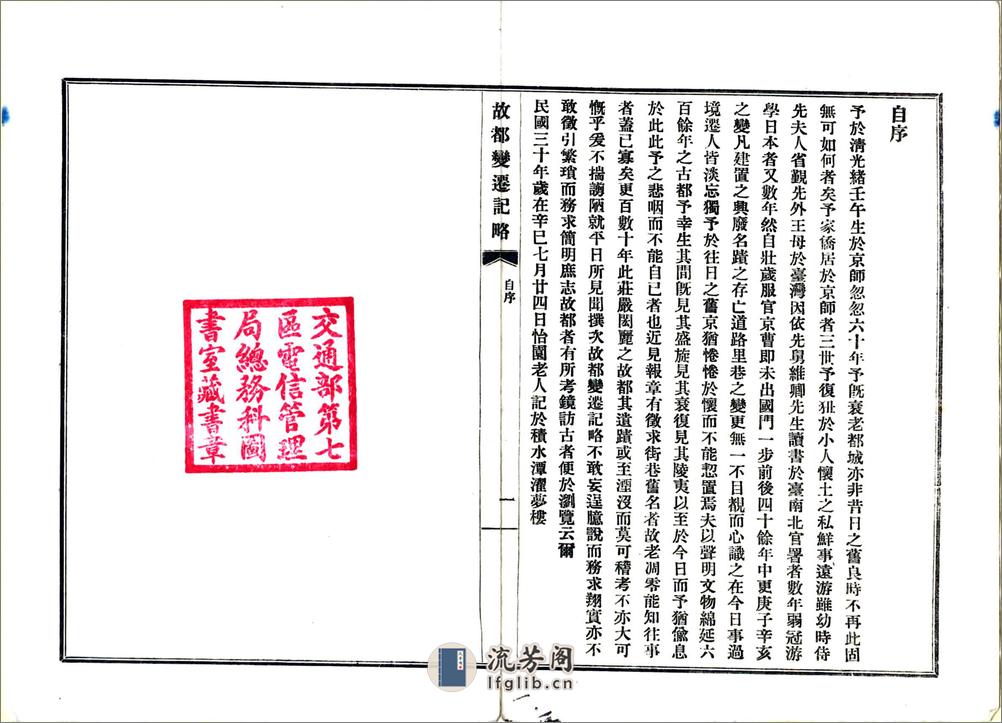 自序
予於淸光緒壬午生於京師忽忽六十年予旣衰老都城亦非昔日之舊良時不再此固
無可如何者矣予家僑居於京師者三世予復狃於小人懷土之私鮮事遠游雖幼時侍
先夫人省覲先外王母於臺灣因依先舅維卿先生讀書於臺南北官署者數年弱冠游
學日本者又數年然自壯歲服官京曹卽未出國門一步前後四十餘年中更庚子辛亥
之變凡建置之興廢名蹟之存亡道路里巷之變更無一不目覩而心識之在今日事過
境遷人皆淡忘獨予於往日之舊京猶惓惓於懷而不能恝置焉夫以聲明文物綿延六
百餘年之古都予幸生其間旣見其盛旋見其衰復見其陵夷以至於今日而予猶偸息
於此此予之悲咽而不能自已者也近見報章有徵求街巷舊名者故老凋零能知往事
者蓋已寡矣更百數十年此莊嚴閎麗之故都其遺蹟或至湮沒而莫可稽考不亦大可
慨乎爰不揣謭陋就平日所見聞撰次故都變遷記略不敢妄逞臆說而務求翔實亦不
敢徵引繁瑣而務求簡明庶志故都者有所考鏡訪古者便於瀏覽云爾
民國三十年歲在辛巳七月廿四日怡園老人記於積水潭濯夢樓
故都變遷記略
自序
一
交通部第七
區電信管理
局總務科圖
書室藏書章
流芳阁
lfglib.cn